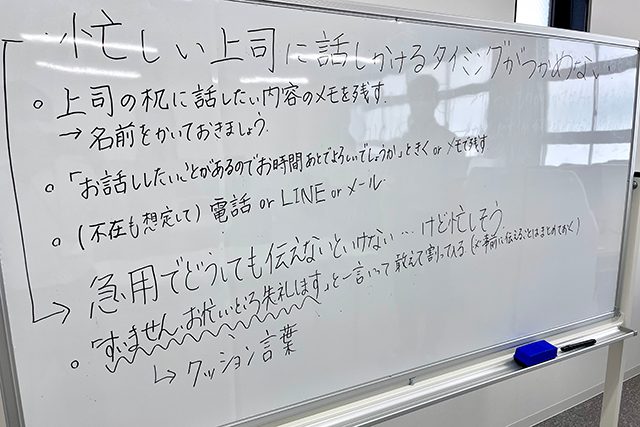 忙しい上司に話しかけるタイミングがつかめない…
○ 上司の机に話したい内容のメモを残す.
→ 名前をかいておきましょう.
○ 「お話ししたいことがあるのでお時間あとでよろしいでしょうか」ときく or メモで残す
○ (不在も想定して) 電話 or LINE or メール
→ 急用でどうしても伝えないといけない…けど忙しそう
○ 「すいません、お忙しいところ失礼します」と一言いって敢えて割って入る (※事前に伝えることはまとめておく)
↳ クッション言葉